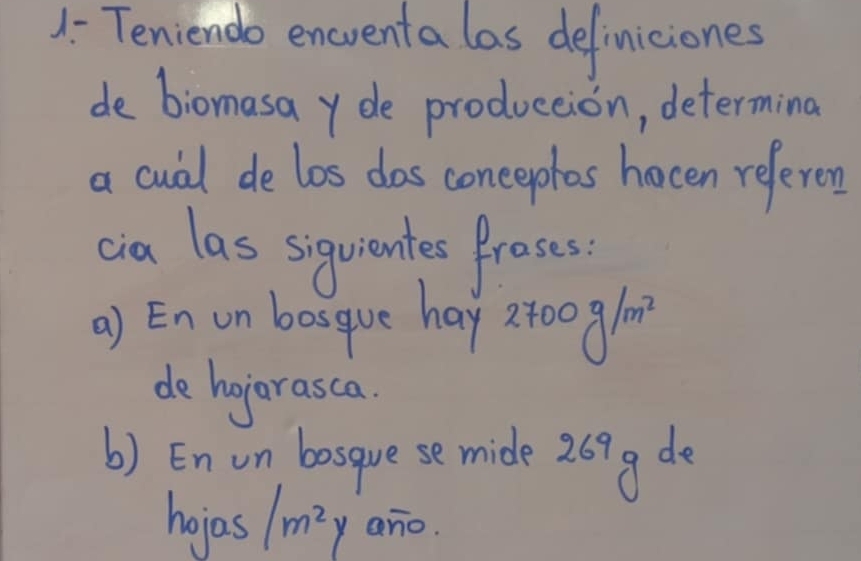 1.- Teniendo encuenta las definiciones
de biomasa y de producción, determina
a cuál de los dos conceptos hacen referen
cia las siguientes frases:
a) En un bosque hay 2700 g/m²
de hojarasca.
b) En un bosque se mide 269 g de
hojas /m² y año.